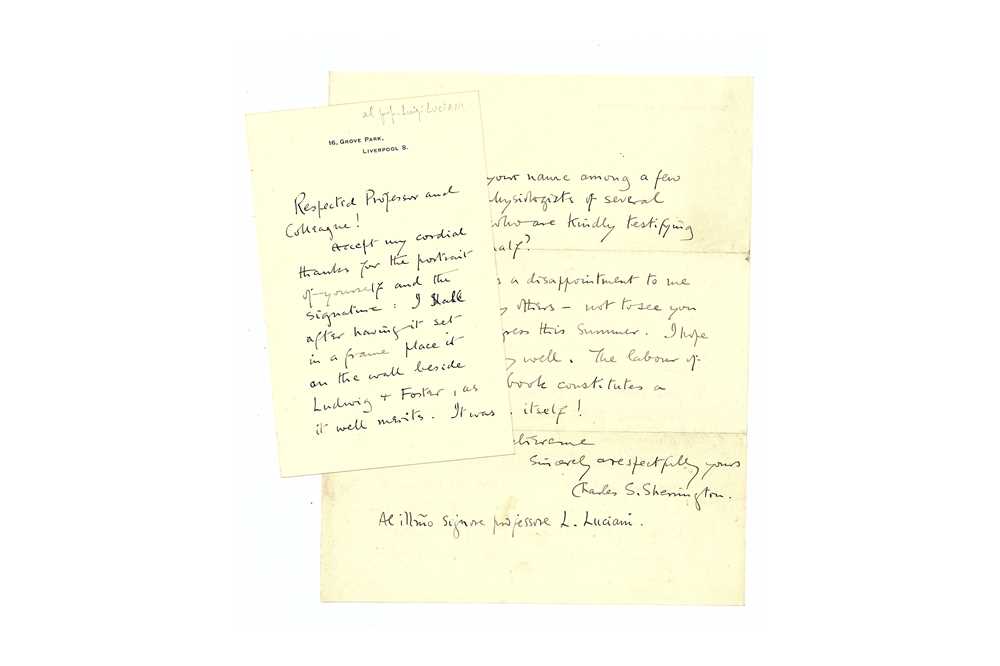 al prof. Luigi Luciani
16, Grove Park,
Liverpool S.
Respected Professor and
Colleague!
Accept my cordial
thanks for the portrait
of yourself and the
signature: I shall
after having it set
in a frame place it
on the wall beside
Ludwig + Foster, as
it well merits. It was
your name among a few
hysiologists of several
who are kindly testifying
half?
s a disappointment to me
y others – not to see you
gress this Summer. I hope
y well. The labour of
book constitutes a
itself!
me
Sincerely & respectfully yours
Charles S. Sherrington.
Al illmo Signore professore L. Luciani.